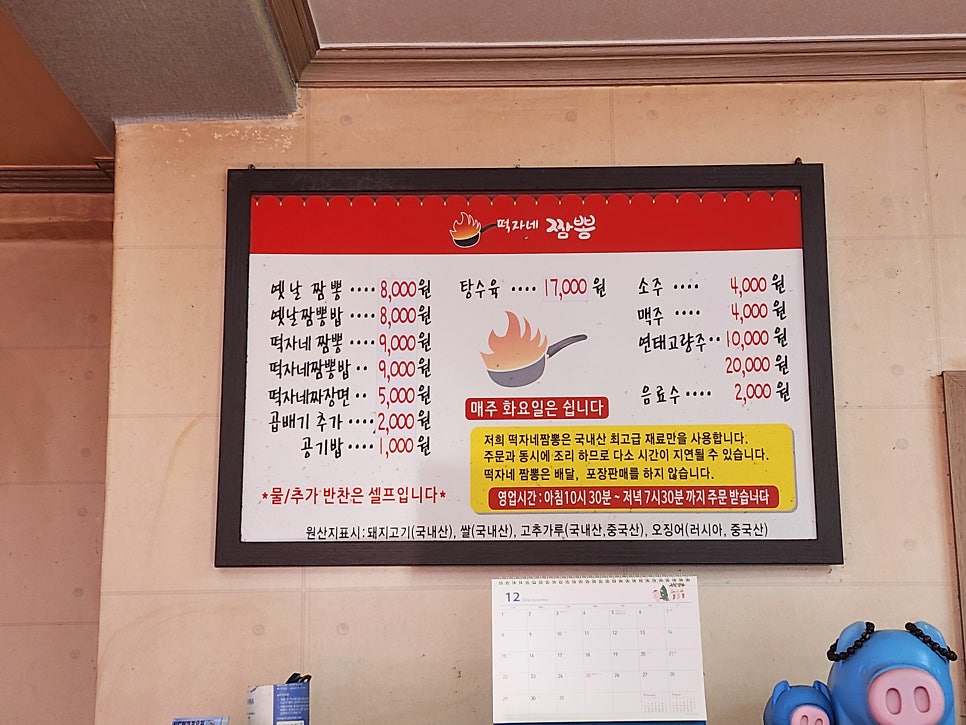 떡자네 짬뽕
옛날 짬뽕 •••• 8,000원
옛날짬뽕밥 •••• 8,000원
떡자네 짬뽕 •••• 9,000원
떡자네짬뽕밥 •• 9,000원
떡자네짜장면 •• 5,000원
곱배기 추가 •••• 2,000원
공기밥 •••• 1,000원
*물/추가 반찬은 셀프입니다*
탕수육 •••• 17,000 원
매주 화요일은 쉽니다
소주 •••• 4,000 원
맥주 •••• 4,000 원
연태고량주•• 10,000 원
20,000 원
음료수 •••• 2,000 원
저희 떡자네짬뽕은 국내산 최고급 재료만을 사용합니다.
주문과 동시에 조리 하므로 다소 시간이 지연될 수 있습니다.
떡자네 짬뽕은 배달, 포장판매를 하지 않습니다.
영업시간 : 아침10시 30분 ~ 저녁 7시30분 까지 주문 받습니다
원산지표시 : 돼지고기(국내산), 쌀(국내산), 고추가루(국내산,중국산), 오징어(러시아, 중국산)
12
1 2 3 4 5 6 7
8 9 10 11 12 13 14
15 16 17 18 19 20 21
22 23 24 25 26 27 28
29 30 31